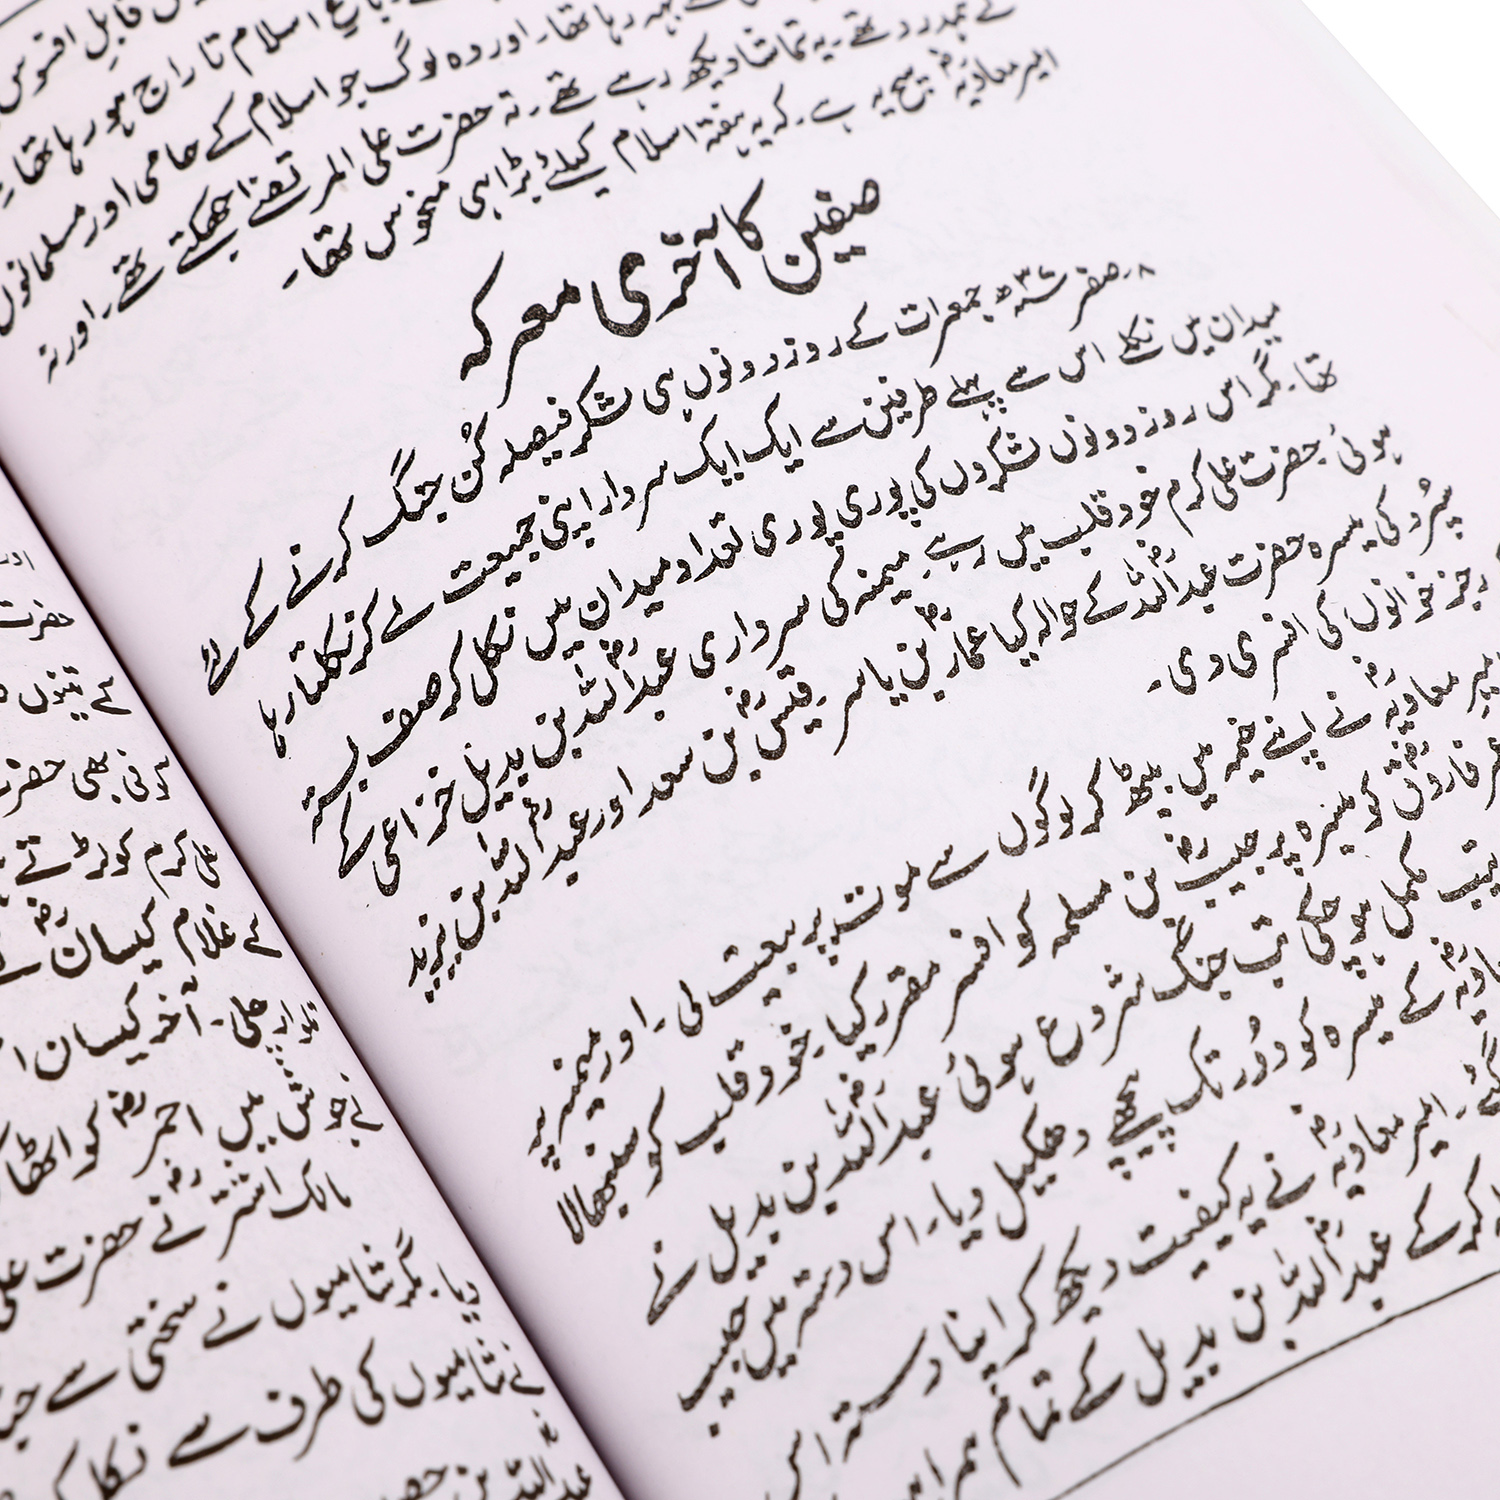 قابلِ افسوس
باغِ اسلام تاراج ہو رہا تھا۔
بہہ رہا تھا۔ اور وہ لوگ جو اسلام کے حامی اور مسلمانوں
کے ہمدرد تھے۔ یہ تماشا دیکھ رہے تھے۔ نہ حضرت علی المرتضےٰ جھکتے تھے۔ اور نہ
امیر معاویہؓ سچ یہ ہے۔ کہ یہ ہفتہ اسلام کیلئے بڑا ہی منحوس تھا۔
صفین کا آخری معرکہ
۸۔صفر ۳۷ھ جمعرات کے روز دونوں ہی لشکر فیصلہ کُن جنگ کرنے کے لئے
میدان میں نکلے اس سے پہلے طرفین سے ایک ایک سردار اپنی جمیعت لے کر نکلتا رہا
تھا۔ مگر اس روز دونوں لشکروں کی پوری پوری تعداد میدان میں نکل کر صف بستہ
ہوئی۔ حضرت علی کرم خود قلب میں رہے۔ میمنہ کی سرداری عبداللہؓ بن بدیل خزاعی کے
سپُرد کی میسرہ حضرت عبداللہؓ کے حوالہ کیا عمارؓ بن یاسر۔ قیسؓ بن سعد اور عبداللہؓ بن یزید
رجز خوانوں کی افسری دی۔
امیر معاویہؓ نے اپنے خیمہ میں بیٹھ کر لوگوں سے موت پر بیعت لی۔ اور میمنہ پہ
فاروقؓ کو میسرہ پر حبیبؓ بن مسلمہ کو افسر مقرر کیا۔ خود قلب کو سنبھالا
مکمل ہو چکی تب جنگ شروع ہوئی عبداللہؓ بن بدیل نے
کے میسرہ کو دُور تک پیچھے دھکیل دیا۔ اس دستہ میں حبیب
امیر معاویہؓ نے یہ کیفیت دیکھ کر اپنا دستہ اس
کر کے عبداللہؓ بن بدیل کے تمام ہمرا
حضرت
کے تینوں
کوفی بھی حضرت
علی کرم کو لڑتے
کے غلام کیسانؓ
تلوار چلی۔ آخر کیسان
نے جوش میں احمرؓ کو اٹھا
مالک اشترؓ نے حضرت علی
دیا۔ مگر شامیوں نے سختی سے
نے شامیوں کی طرف سے نکل
عبداللہ بن